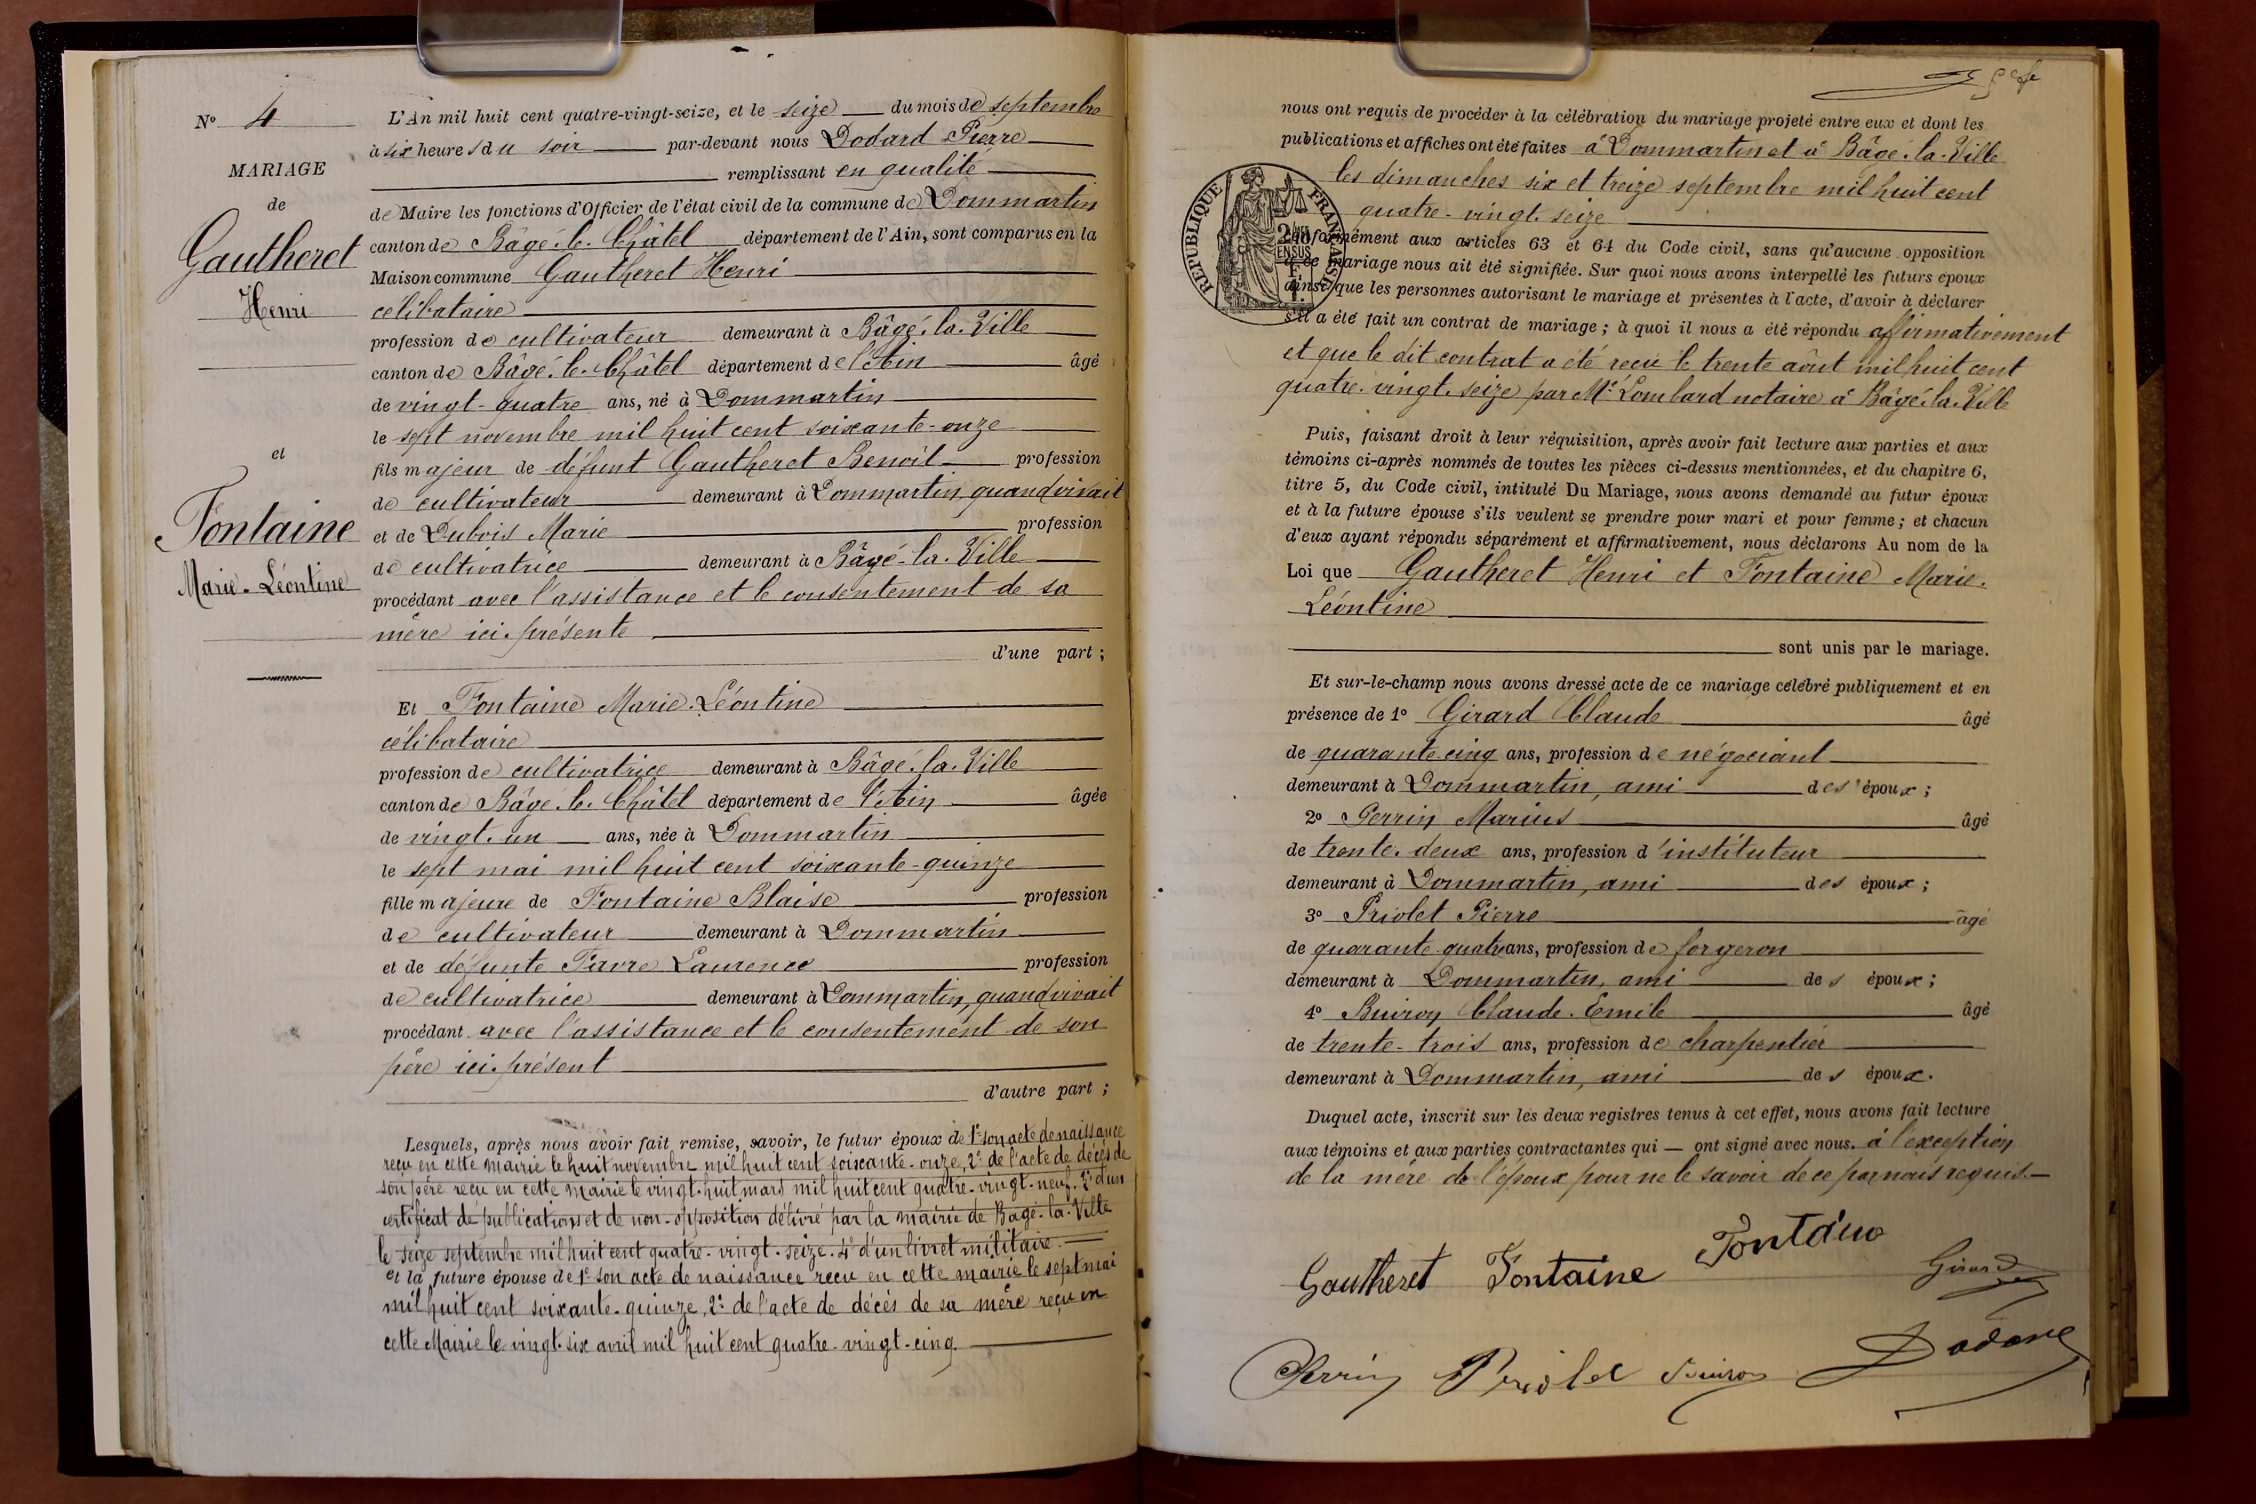 N° 4
MARIAGE
de
Gautheret
Henri
et
Fontaine
Marie-Léontine
L'An mil huit cent quatre-vingt-seize, et le seize du mois de septembre
à six heures du soir par-devant nous Dodard Pierre
remplissant en qualité
de Maire les fonctions d'Officier de l'état civil de la commune de Dommartin
canton de Bâgé-le-Châtel département de l'Ain, sont comparus en la
Maison commune Gautheret Henri
célibataire
profession de cultivateur demeurant à Bâgé-la-Ville
canton de Bâgé-le-Châtel département de l'Ain âgé
de vingt-quatre ans, né à Dommartin
le sept novembre mil huit cent soixante-onze
fils majeur de défunt Gautheret Benoît profession
de cultivateur demeurant à Dommartin, quand vivait
et de Dubois Marie profession
de cultivatrice demeurant à Bâgé-la-Ville
procédant avec l'assistance et le consentement de sa
mère ici présente
d'une part ;
Et Fontaine Marie-Léontine
célibataire
profession de cultivatrice demeurant à Bâgé-la-Ville
canton de Bâgé-le-Châtel département de l'Ain âgée
de vingt-un ans, née à Dommartin
le sept mai mil huit cent soixante-quinze
fille majeure de Fontaine Blaise profession
de cultivateur demeurant à Dommartin
et de défunte Favre Laurence profession
de cultivatrice demeurant à Dommartin, quand vivait
procédant avec l'assistance et le consentement de son
père ici présent
d'autre part ;
Lesquels, après nous avoir fait remise, savoir, le futur époux de 1° son acte de naissance
reçu en cette mairie le huit novembre mil huit cent soixante-onze, 2° de l'acte de décès de
son père reçu en cette mairie le vingt-huit mars mil huit cent quatre-vingt-neuf. 3° d'un
certificat de publications et de non-opposition délivré par la mairie de Bâgé-la-Ville
le seize septembre mil huit cent quatre-vingt-seize. 4° d'un livret militaire.
et la future épouse de 1° son acte de naissance reçu en cette mairie le sept mai
mil huit cent soixante-quinze, 2° de l'acte de décès de sa mère reçu en
cette Mairie le vingt-six avril mil huit cent quatre-vingt-cinq.
nous ont requis de procéder à la célébration du mariage projeté entre eux et dont les
publications et affiches ont été faites à Dommartin et à Bâgé-la-Ville
les dimanches six et treize septembre mil huit cent
quatre-vingt-seize
REPUBLIQUE FRANÇAISE
conformément aux articles 63 et 64 du Code civil, sans qu'aucune opposition
à ce mariage nous ait été signifiée. Sur quoi nous avons interpellé les futurs époux
ainsi que les personnes autorisant le mariage et présentes à l'acte, d'avoir à déclarer
s'il a été fait un contrat de mariage ; à quoi il nous a été répondu affirmativement
et que le dit contrat a été reçu le trente août mil huit cent
quatre-vingt-seize par Me Lombard notaire à Bâgé-la-Ville
Puis, faisant droit à leur réquisition, après avoir fait lecture aux parties et aux
témoins ci-après nommés de toutes les pièces ci-dessus mentionnées, et du chapitre 6,
titre 5, du Code civil, intitulé Du Mariage, nous avons demandé au futur époux
et à la future épouse s'ils veulent se prendre pour mari et pour femme ; et chacun
d'eux ayant répondu séparément et affirmativement, nous déclarons Au nom de la
Loi que Gautheret Henri et Fontaine Marie-
Léontine
sont unis par le mariage.
Et sur-le-champ nous avons dressé acte de ce mariage célébré publiquement et en
présence de 1° Girard Claude âgé
de quarante-cinq ans, profession de négociant
demeurant à Dommartin, ami des époux ;
2° Perrin Marius âgé
de trente-deux ans, profession d'instituteur
demeurant à Dommartin, ami des époux ;
3° Priolet Pierre âgé
de quarante-quatre ans, profession de forgeron
demeurant à Dommartin, ami des époux ;
4° Buiron Claude-Emile âgé
de trente-trois ans, profession de charpentier
demeurant à Dommartin, ami des époux.
Duquel acte, inscrit sur les deux registres tenus à cet effet, nous avons fait lecture
aux témoins et aux parties contractantes qui — ont signé avec nous. à l'exception
de la mère de l'époux pour ne le savoir de ce par nous requis.
Gautheret Fontaine Fontaine Girard
Perrin Priolet Buiron Dodard